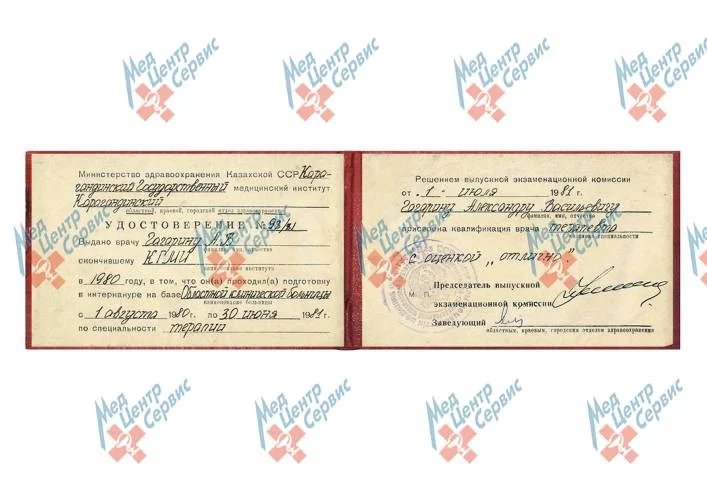 Мед Центр Сервис
Мед Центр Сервис
Мед Центр Сервис
Мед Центр Сервис
Министерство здравоохранения Казахской ССР Кара-
гандинский Государственный медицинский институт
Карагандинский
областной, краевой, городской отдел здравоохранения
УДОСТОВЕРЕНИЕ № 93/
Выдано врачу Гагарину А.В
фамилия, имя, отчество
окончившему КГМИ
наименование института
в 1980 году, в том, что он(а) проходил(а) подготовку
в интернатуре на базе Областной клинической больницы
наименование больницы
с 1 августа 1980 г. по 30 июня 1981 г.
по специальности терапии
Решением выпускной экзаменационной комиссии
от „1“ июля 1981 г.
Гагарину Александру Васильевичу
фамилия, имя, отчество
присвоена квалификация врача терапевта
наименование специальности
с оценкой „отлично“.
Председатель выпускной
М. П.
экзаменационной комиссии
Заведующий
областным, краевым, городским отделом здравоохранения
Мед Центр Сервис
Мед Центр Сервис
Мед Центр Сервис
Мед Центр Сервис
Мед Центр Сервис
Мед Центр Сервис
Мед Центр Сервис
Мед Центр Сервис